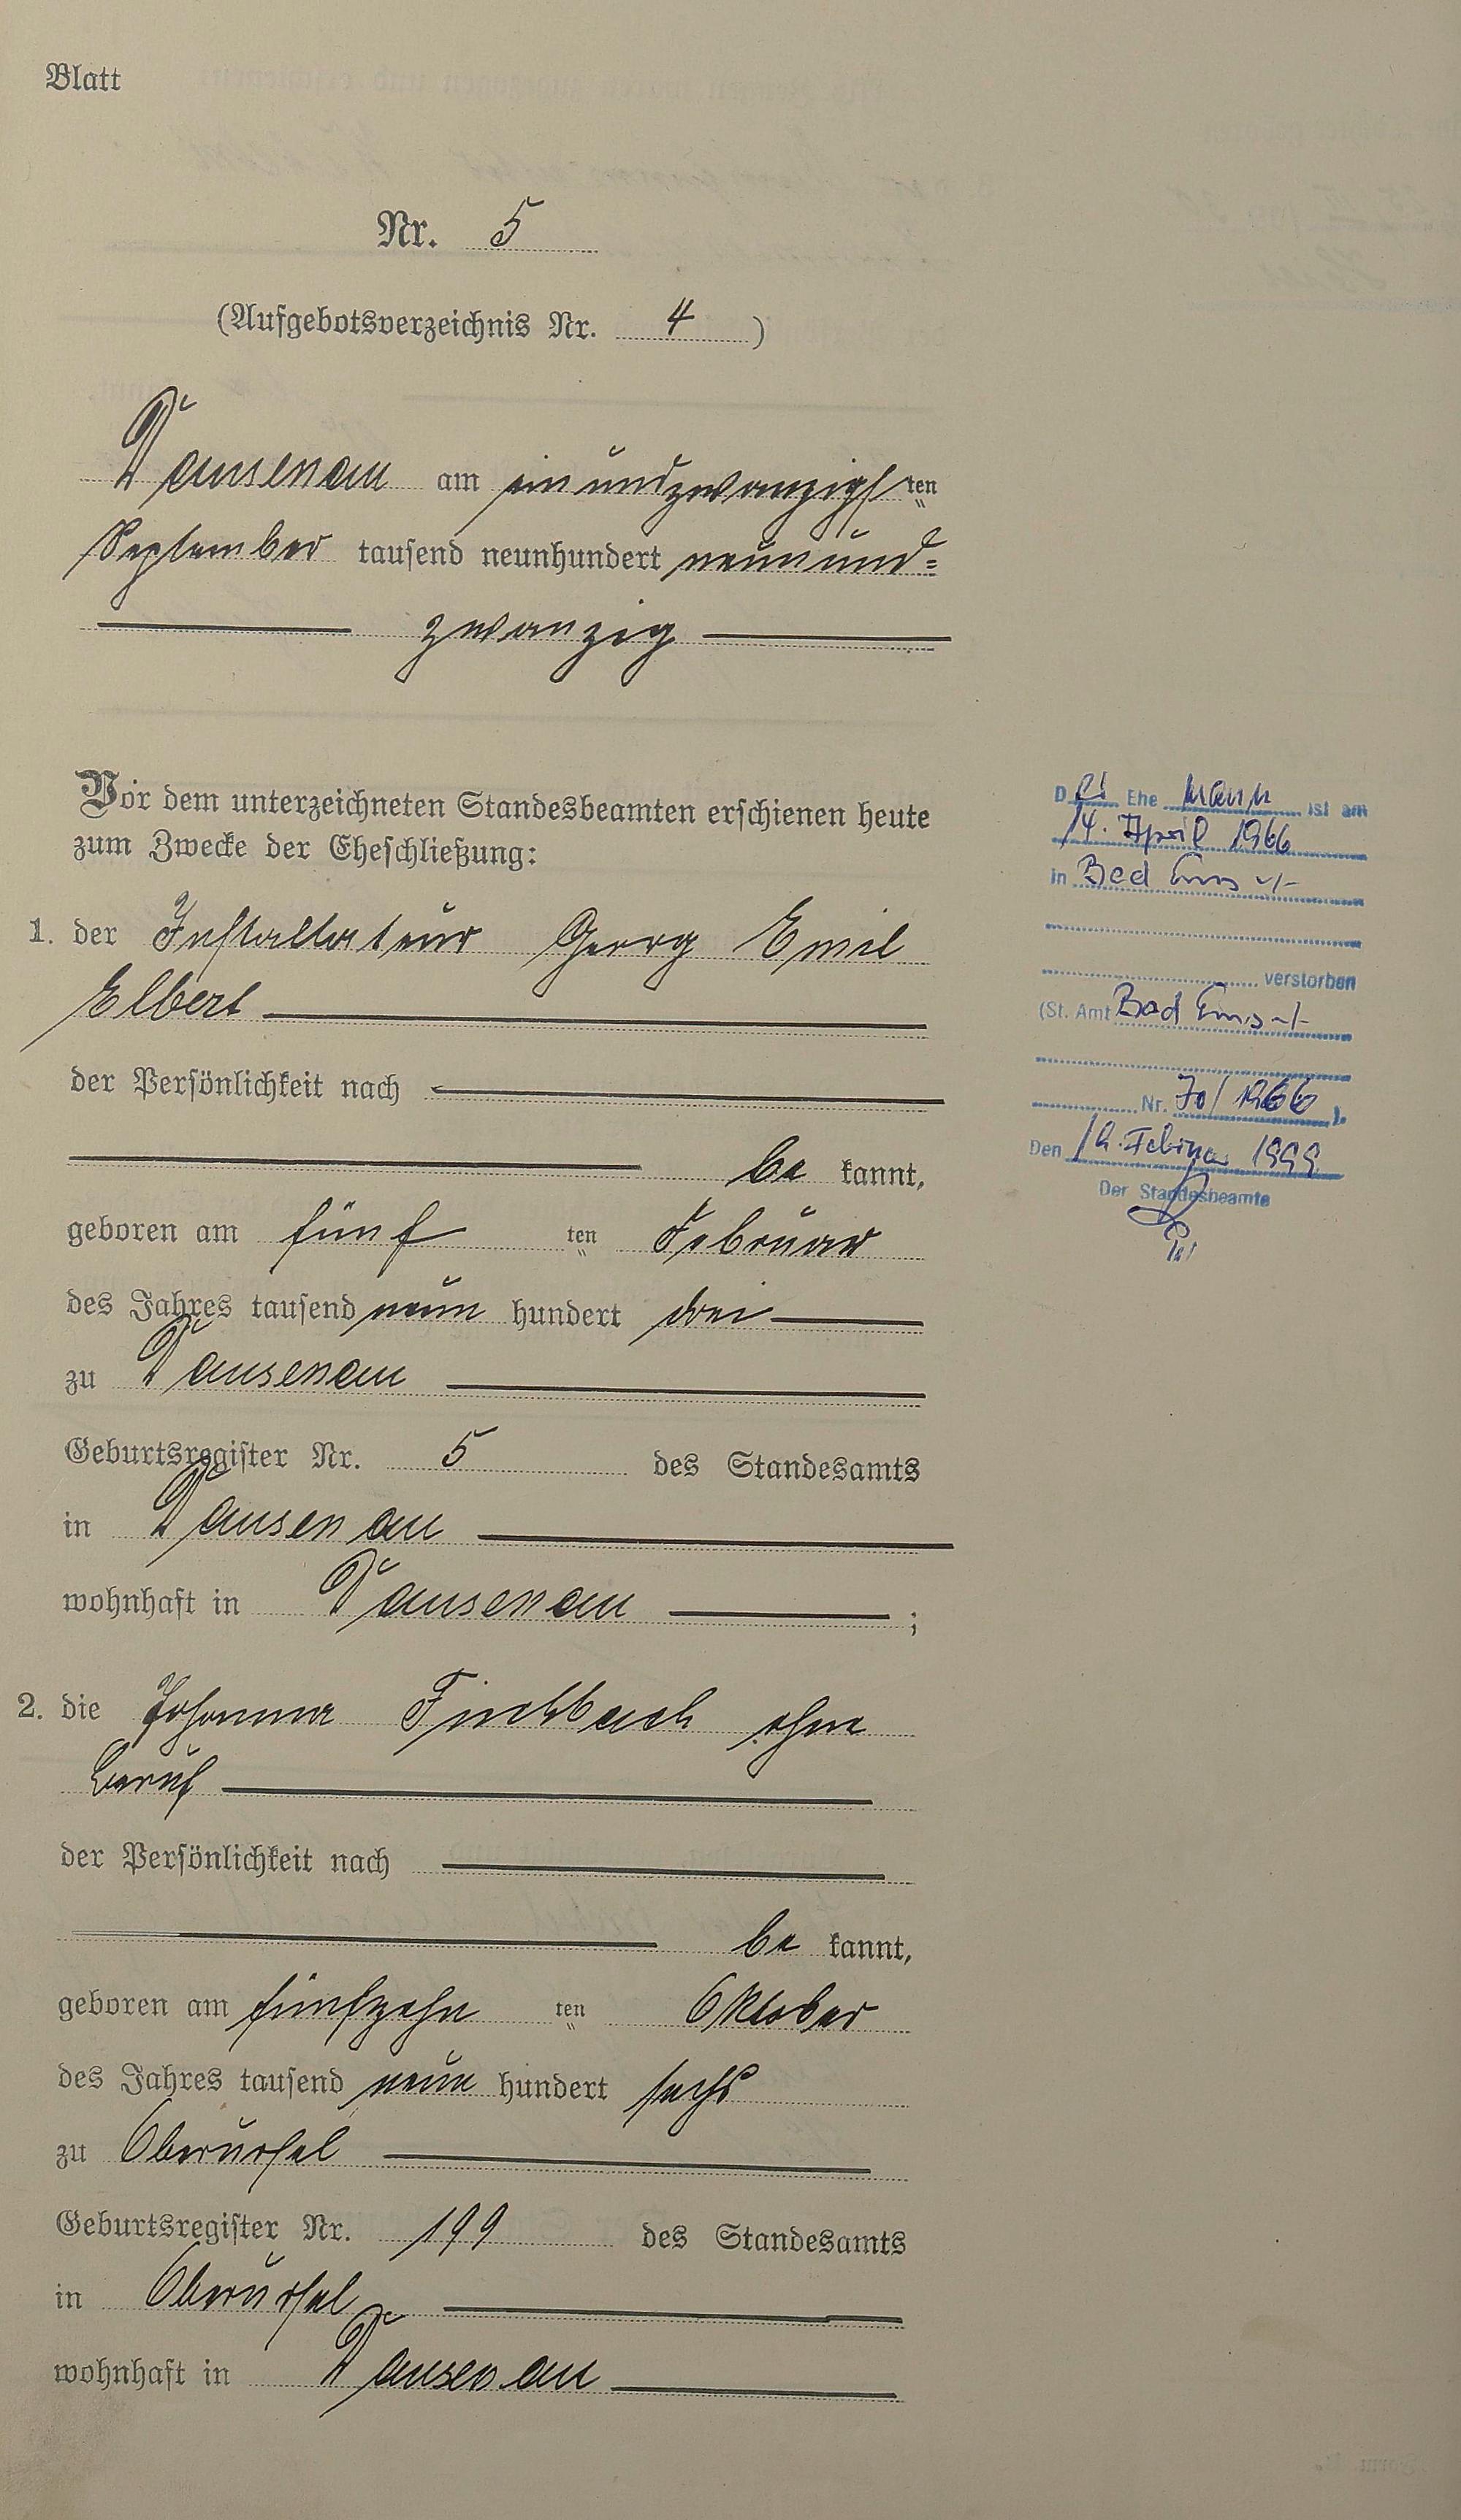 Blatt
Nr. 5
(Aufgebotsverzeichnis Nr. 4 )
Dausenau am einundzwanzigsten
September tausend neunhundert neunund=
zwanzig
Vor dem unterzeichneten Standesbeamten erschienen heute
zum Zwecke der Eheschließung:
1. der Installateur Georg Emil
Elbert
der Persönlichkeit nach
be kannt,
geboren am fünf ten Februar
des Jahres tausend neun hundert drei
zu Dausenau
Geburtsregister Nr. 5 des Standesamts
in Dausenau
wohnhaft in Dausenau ;
2. die Johanna Finkbach ohne
Beruf
der Persönlichkeit nach
be kannt,
geboren am fünfzehn ten Oktober
des Jahres tausend neun hundert sechs
zu Oberursel
Geburtsregister Nr. 199 des Standesamts
in Oberursel
wohnhaft in Dausenau
Der Ehe mann ist am
14. April 1966
in Bad Ems -/-
verstorben
(St. Amt Bad Ems -/-
Nr. 70/1966 ).
Den Februar 1999
Der Standesbeamte